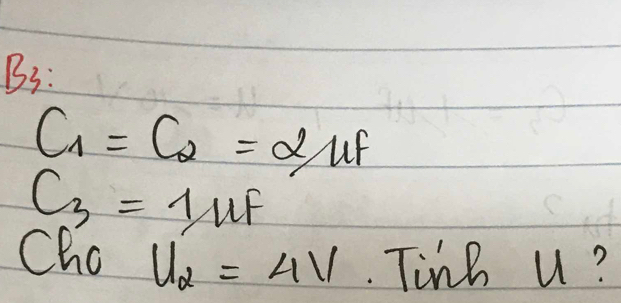 B3:
C1 = C2 = 2 μF
C3 = 1 μF
Cho U2 = 4V. Tính U?